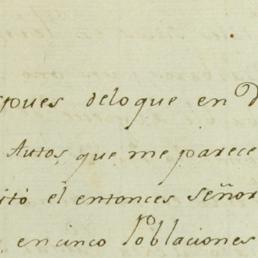 spues deloque en D
Autos, que me parece
itó el entonces señor
en cinco Poblaciones